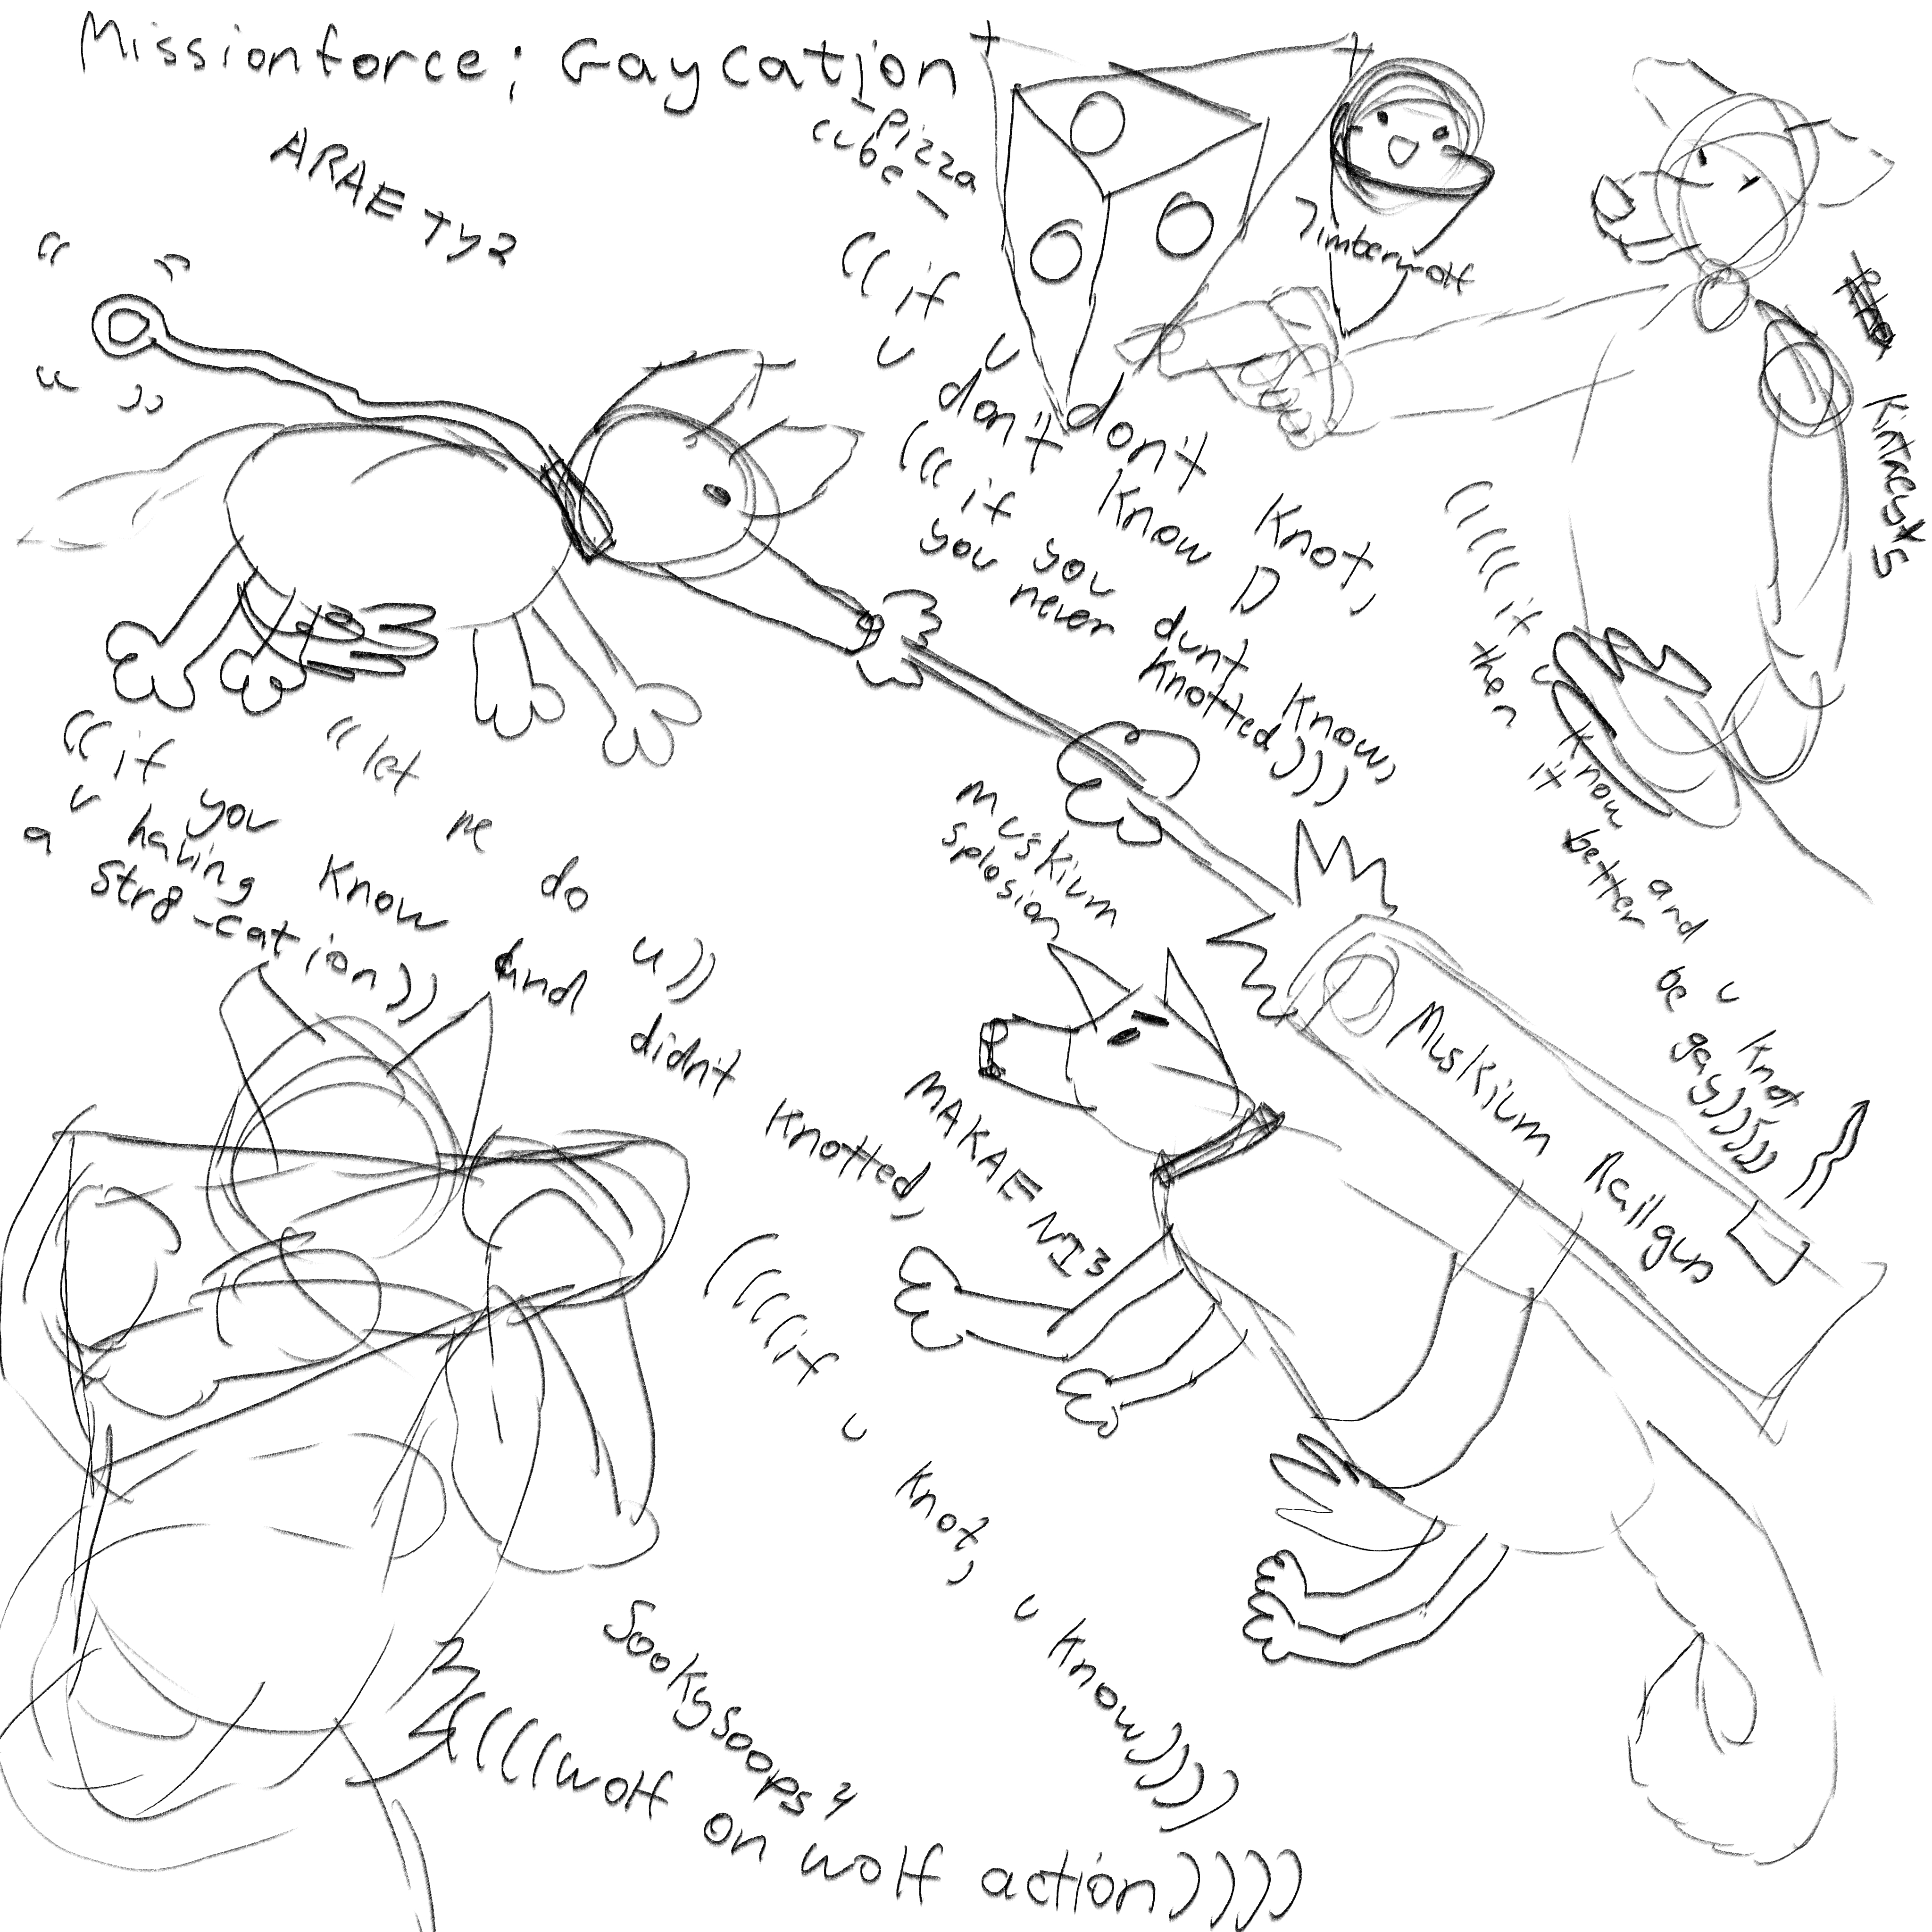 Missionforce; Gaycation
ARAE TY2
-Pizza
cube-
Timberwolf
Kintacyx5
((if u don't know D
u don't knot,
(((if you dunt know,
you never knotted)))
((((( if u know and u knot
then it better be gay)))))
((if you know and didn't knotted,
u having
a str8-cation))
"let me do u))
muskium
splosion
Muskium Railgun
MAKAE NI3
((((if u knot, u know))))
Sookysoops4
((((wolf on wolf action))))